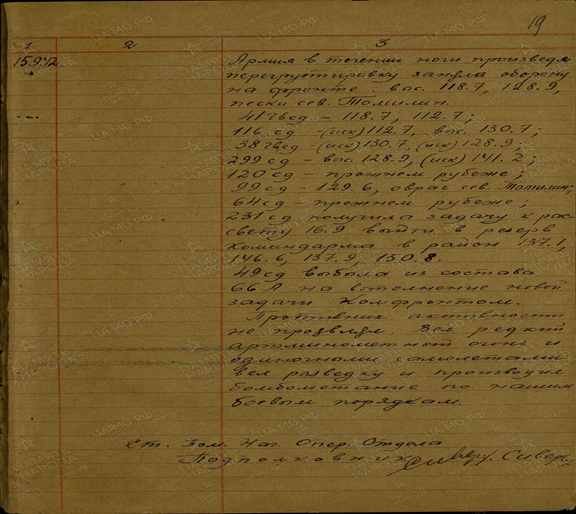 19
1 2 3
15.9.42. Армия в течении ночи произведя
перегруппировку заняла оборону
на фронте: выс. 118.7, 128.9,
пески сев. Томилин.
41 гвсд – 118.7, 112.7;
116 сд – (иск) 112.7, выс. 130.7;
38 гвсд – (иск) 130.7, (иск) 128.9;
299 сд – выс. 128.9, (иск) 141.2;
120 сд – прежнем рубеже;
99 сд – 129.6, овраг сев. Томилин;
64 сд – прежнем рубеже;
231 сд получила задачу к рас-
свету 16.9 выйти в резерв
командарма в район 137.1,
146.6, 137.9, 150.8.
49 сд выбыла из состава
66 А на выполнение новой
задачи Комфронтом.
Противник активности
не проявлял. Вел редкий
артминометный огонь и
одиночными самолетами
вел разведку и производил
бомбометание по нашим
боевым порядкам.
Ст. Пом. Нач. Опер. Отдела
Подполковник